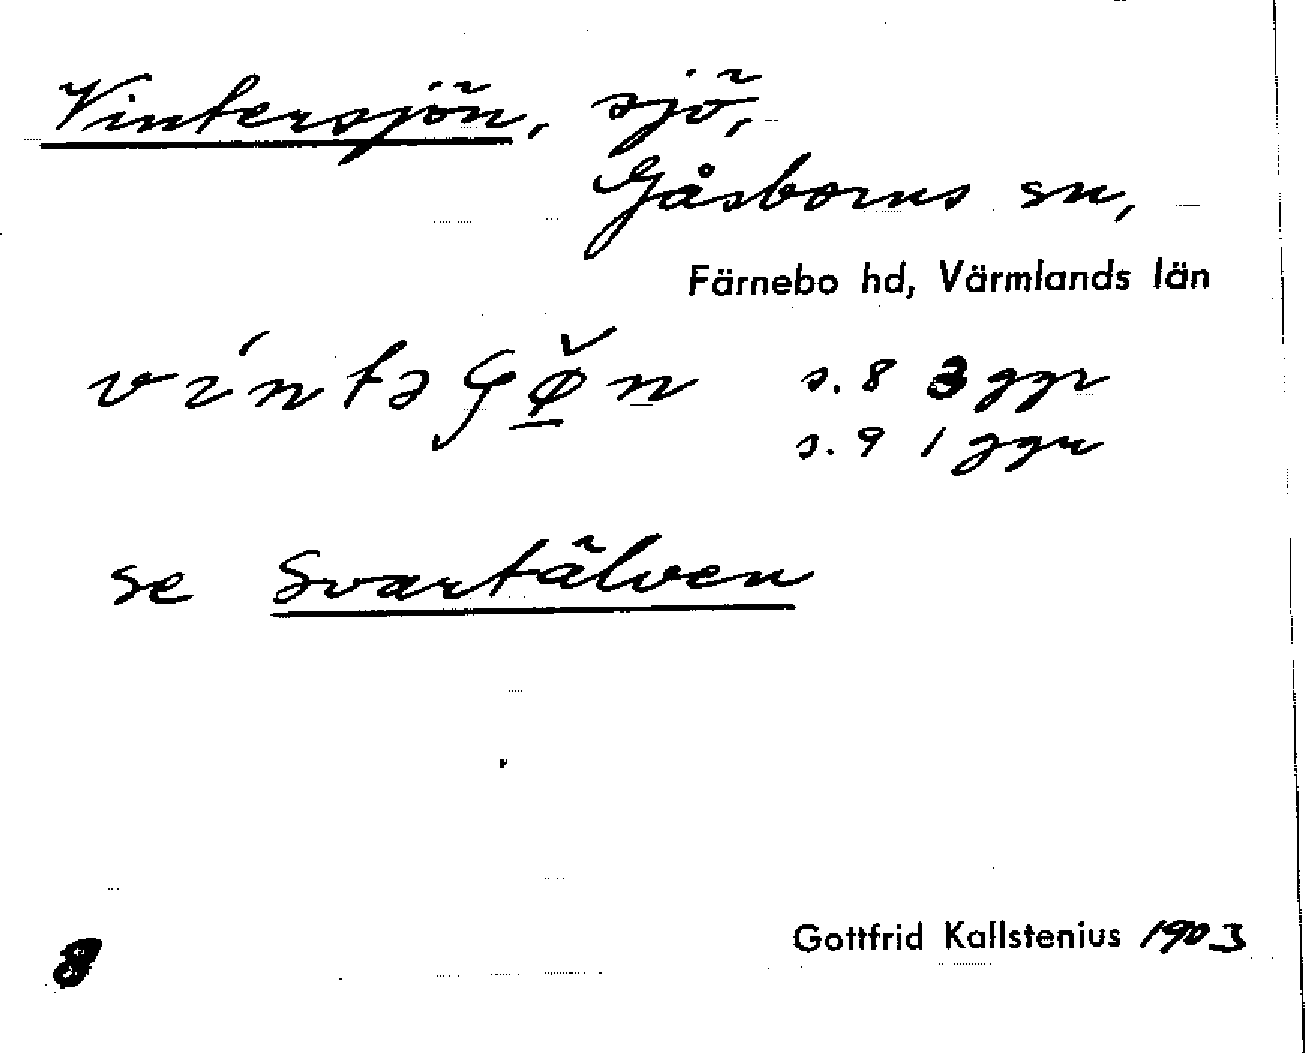 Vintersjön, sjö,
Gåsborns sn,
Färnebo hd, Värmlands län
s. 8 3 ggr
s. 9 1 ggr
se Svartälven
Gottfrid Kallstenius 1903
8